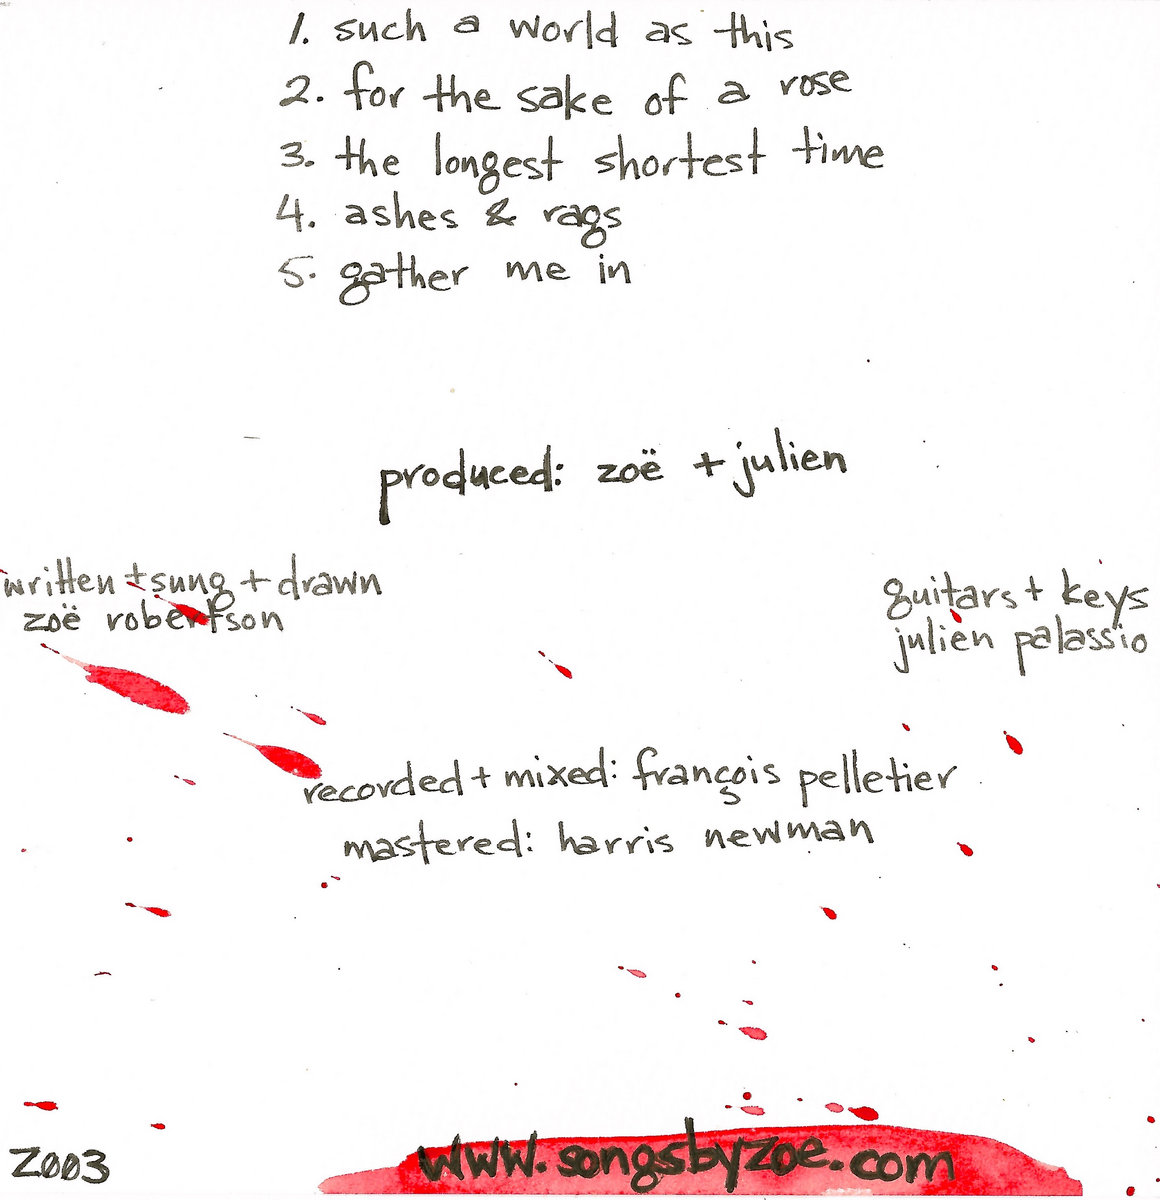 1. such a world as this
2. for the sake of a rose
3. the longest shortest time
4. ashes & rags
5. gather me in
produced: zoë + julien
written + sung + drawn
zoë robertson
guitars + keys
julien palassio
recorded + mixed: françois pelletier
mastered: harris newman
Z003
www.songsbyzoe.com